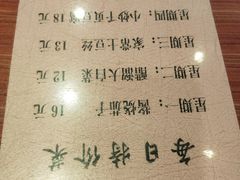 每日特价菜
星期一：酱烧茄子 16元
星期二：醋溜大白菜 12元
星期三：家常土豆丝 13元
星期四：小炒千页豆腐 18元